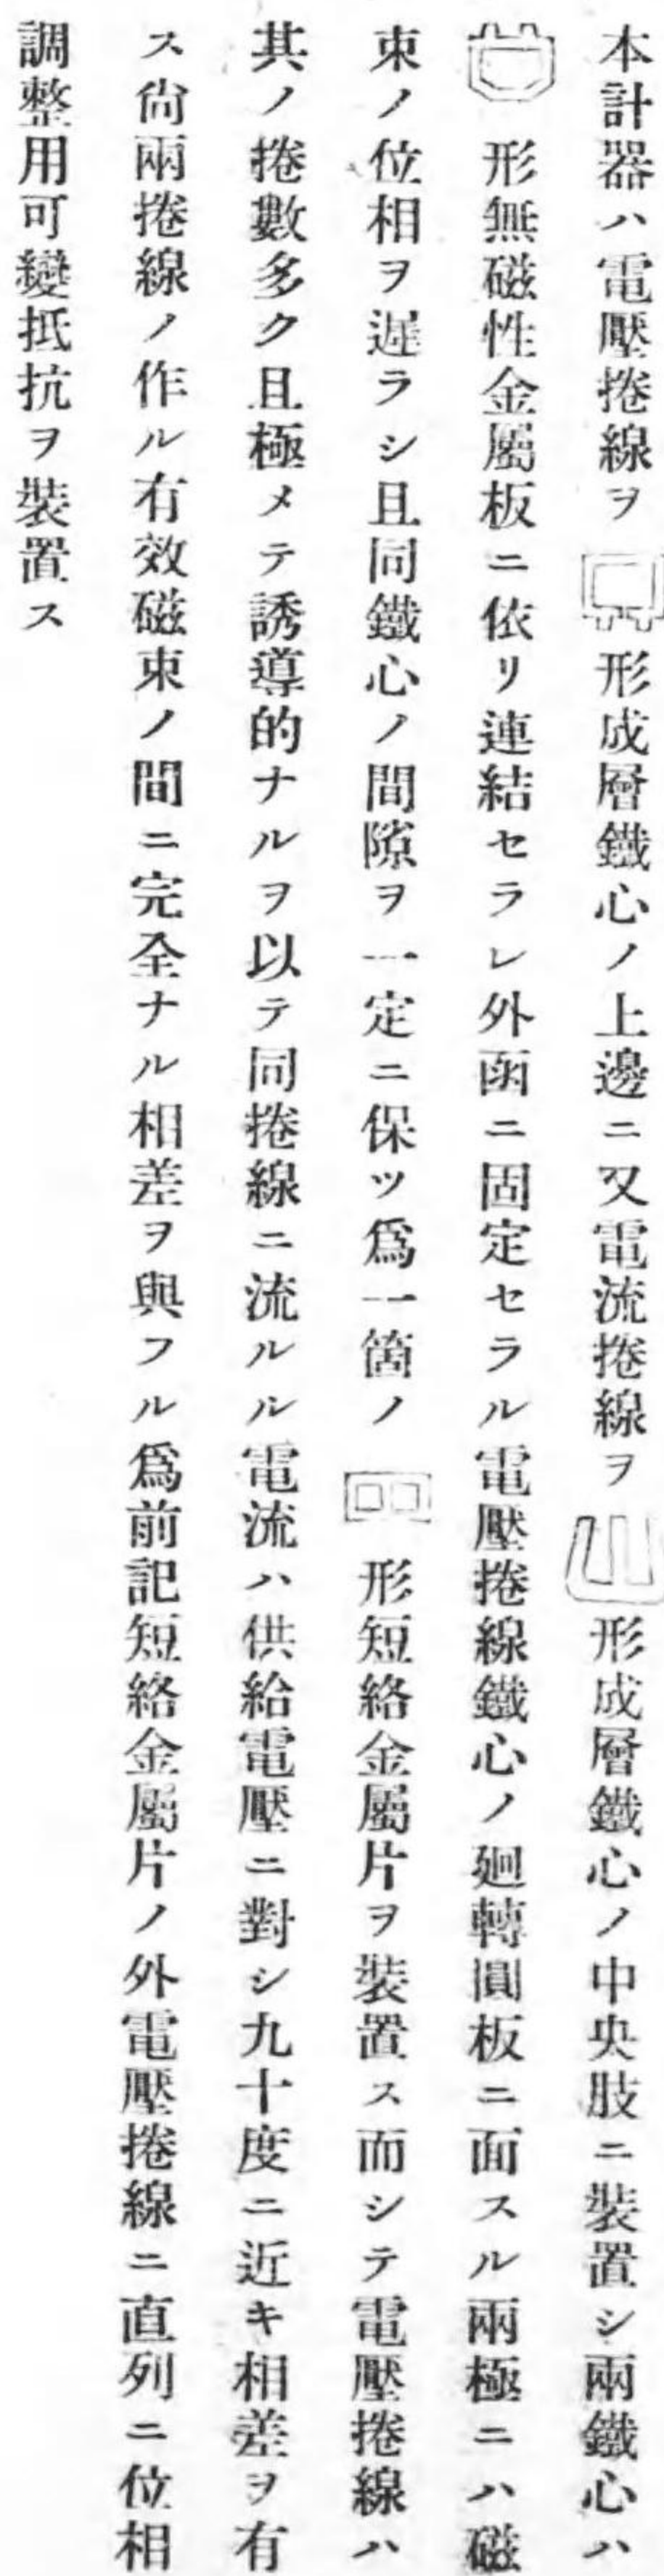 本計器ハ電壓捲線ヲ形成層鐵心ノ上邊ニ又電流捲線ヲ形成層鐵心ノ中央肢ニ裝置シ兩鐵心ハ
形無磁性金屬板ニ依リ連結セラレ外函ニ固定セラル電壓捲線鐵心ノ廻轉圓板ニ面スル兩極ニハ磁
束ノ位相ヲ遲ラシ且同鐵心ノ間隙ヲ一定ニ保ツ爲一箇ノ形短絡金屬片ヲ裝置ス而シテ電壓捲線ハ
其ノ捲數多ク且極メテ誘導的ナルヲ以テ同捲線ニ流ルル電流ハ供給電壓ニ對シ九十度ニ近キ相差ヲ有
ス尙兩捲線ノ作ル有效磁束ノ間ニ完全ナル相差ヲ與フル爲前記短絡金屬片ノ外電壓捲線ニ直列ニ位相
調整用可變抵抗ヲ裝置ス